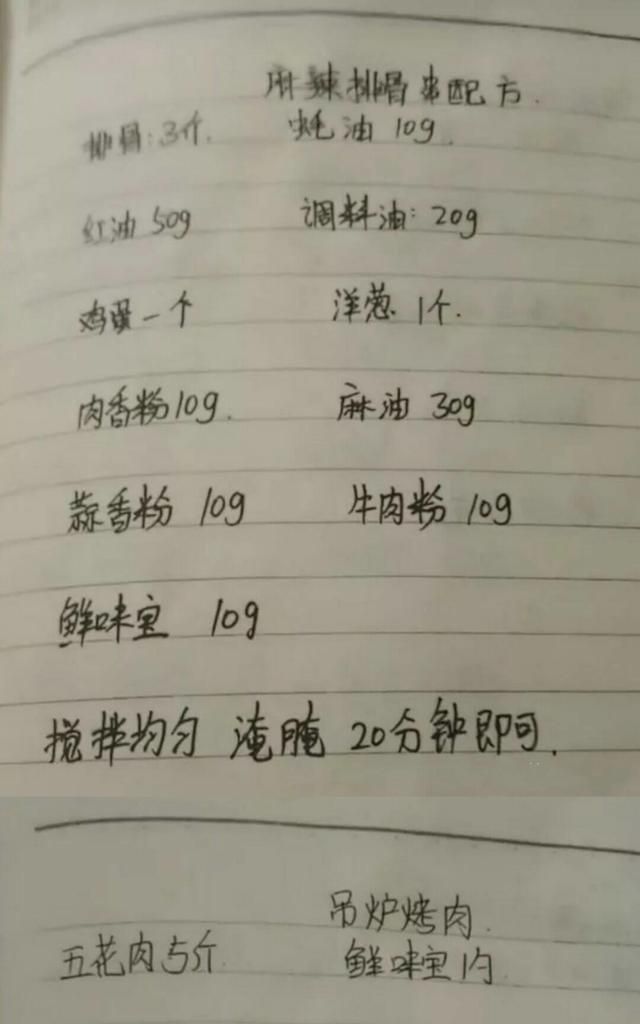 麻辣排骨串配方.
排骨:3斤. 蚝油 10g.
红油 50g 调料油: 20g
鸡蛋一个 洋葱 1个.
肉香粉10g. 麻油 30g
蒜香粉 10g 牛肉粉 10g
鲜味宝 10g
搅拌均匀 淹腌 20分钟即可.
吊炉烤肉.
五花肉5斤 鲜味宝1勺